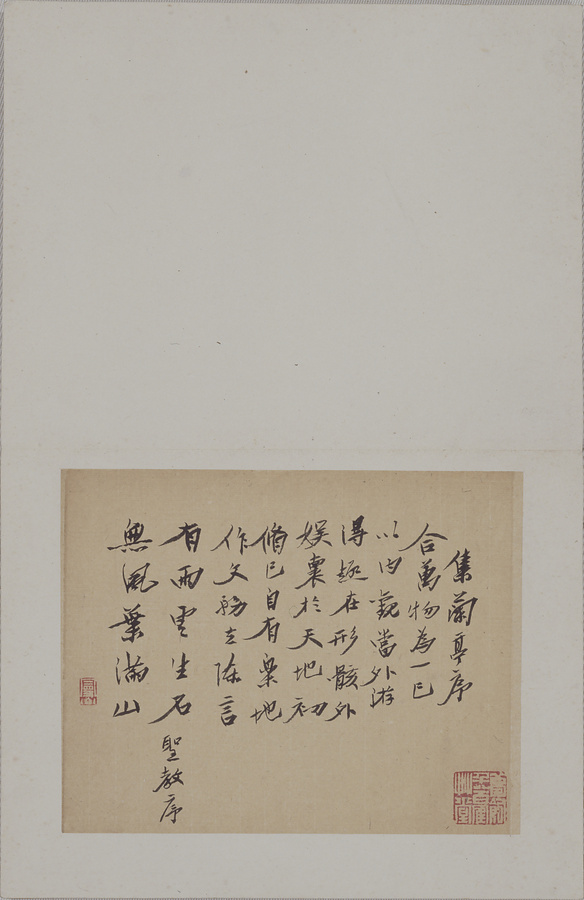 集蘭亭序
合萬物為一己
以内觀當外游
得趣在形骸外
娱襄於天地初
脩己自有樂地
作文務去陳言
有雨雲生石
聖教序
無風葉滿山